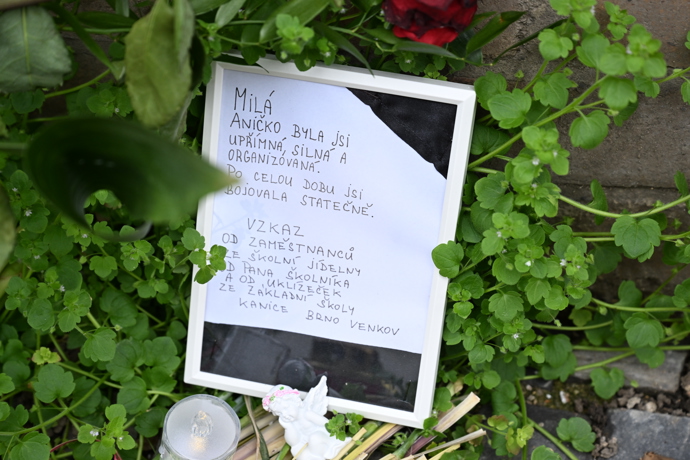 MILÁ
ANIČKO BYLA JSI
UPŘÍMNÁ, SILNÁ A
ORGANIZOVANÁ.
PO CELOU DOBU JSI
BOJOVALA STATEČNĚ.
VZKAZ
OD ZAMĚSTNANCŮ
ZE ŠKOLNÍ JÍDELNY
OD PANA ŠKOLNÍKA
A OD UKLÍZEČEK
ZE ZÁKLADNÍ ŠKOLY
KANICE BRNO VENKOV